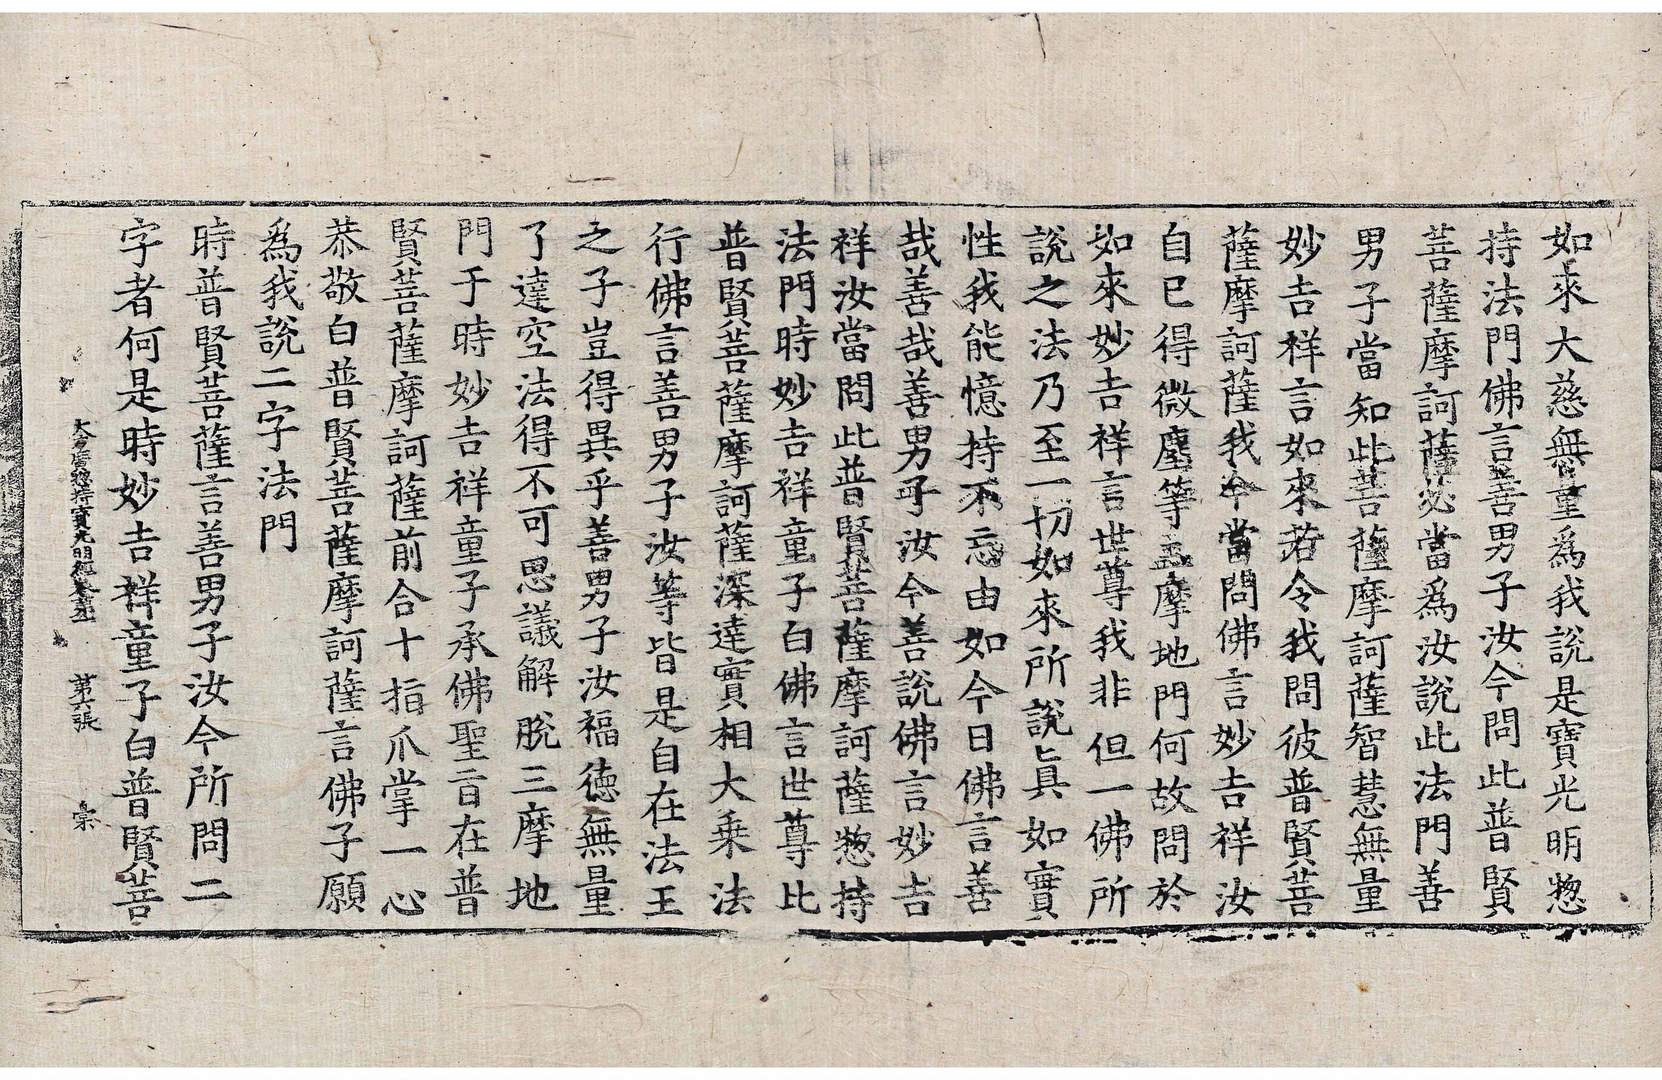 如來大慈無量爲我說是寶光明惣
持法門佛言善男子汝今問此普賢
菩薩摩訶薩必當爲汝說此法門善
男子當知此菩薩摩訶薩智慧無量
妙吉祥言如來若令我問彼普賢菩
薩摩訶薩我今當問佛言妙吉祥汝
自已得微塵等三摩地門何故問於
如來妙吉祥言世尊我非但一佛所
說之法乃至一切如來所說眞如實
性我能憶持不忘由如今日佛言善
哉善哉善男子汝今善說佛言妙吉
祥汝當問此普賢菩薩摩訶薩惣持
法門時妙吉祥童子白佛言世尊比
普賢菩薩摩訶薩深達實相大乘法
行佛言善男子汝等皆是自在法王
之子豈得異乎善男子汝福德無量
了達空法得不可思議解脫三摩地
門于時妙吉祥童子承佛聖旨在普
賢菩薩摩訶薩前合十指爪掌一心
恭敬白普賢菩薩摩訶薩言佛子願
爲我說二字法門
時普賢菩薩言善男子汝今所問二
大方廣惣持寶光明經卷第五 第六張 棠
字者何是時妙吉祥童子白普賢菩